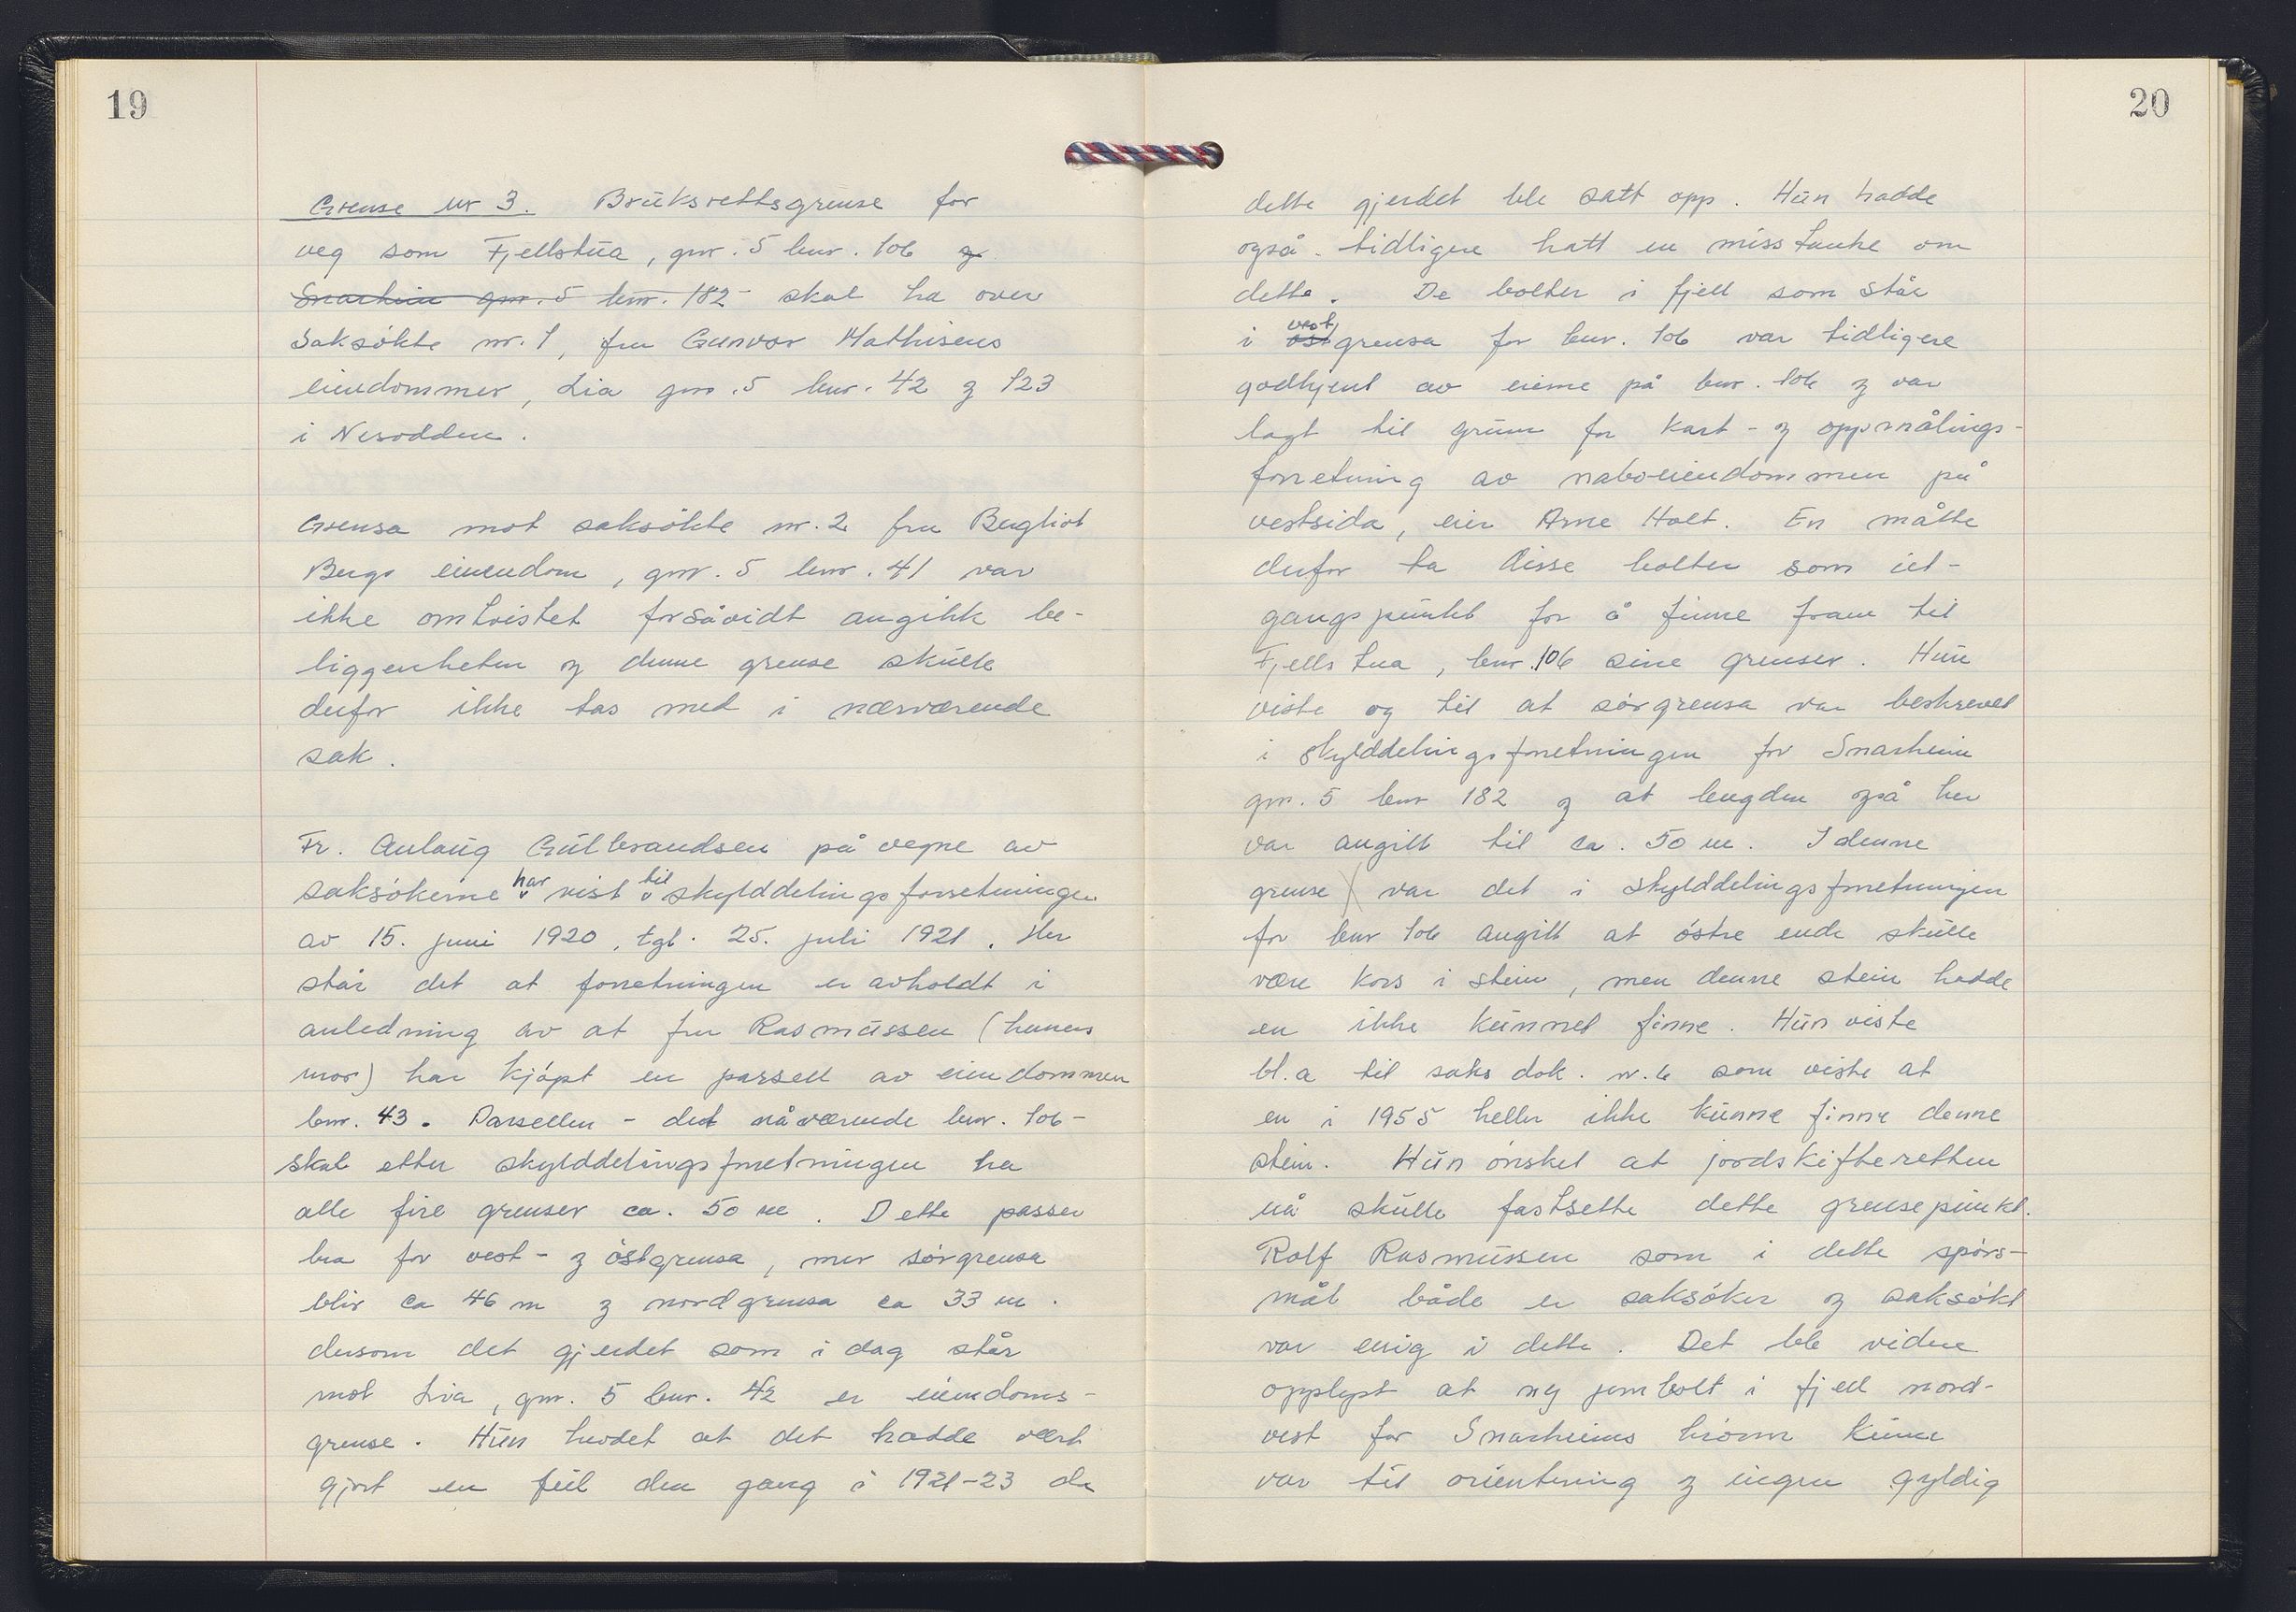 19
Grense nr 3. Bruksrettsgrense for
veg som Fjellstua, gnr. 5 bnr. 106 og
Snarheim gnr. 5 bnr. 182 skal ha over
Saksökte nr. 1, fru Gunvor Mathisens
eiendommer, Lia gnr. 5 bnr. 42 og 123
i Nesodden.
Grensa mot saksökte nr. 2 fru Bergliot
Bergs eiendom, gnr. 5 bnr. 41 var
ikke omtvistet forsåvidt angikk be-
liggenheten og denne grense skulle
derfor ikke tas med i nærværende
sak.
Fr. Aulaug Gulbrandsen på vegne av
saksökerne har vist til skylddelingsforretningen
av 15. juni 1920, tgl. 25. juli 1921. Her
står det at forretningen er avholdt i
anledning av at fru Rasmussen (hunens
mor) har kjöpt en parsell av eiendommen
bnr. 43. Parsellen - det nåværende bnr. 106 -
skal etter skylddelingsforretningen ha
alle fire grenser ca. 50 m. Dette passer
bra for vest- og östgrensa, mer sörgrensa
blir ca 46 m og nordgrensa ca 33 m.
dersom det gjerdet som i dag står
mot Lia, gnr. 5 bnr. 42 er eiendoms-
grense. Hun hevdet at det hadde vært
gjort en feil den gang i 1921-23 da
20
dette gjerdet ble satt opp. Hun hadde
også tidligere hatt en misstanke om
dette. De bolter i fjell som står
i öst vest grensa for bnr. 106 var tidligere
godkjent av eierne på bnr. 106 og var
lagt til grunn for kart- og oppmålings-
forretning av naboeiendommen på
vestsida, eier Arne Holt. En måtte
derfor ta disse bolter som ut-
gangspunkt for å finne fram til
Fjellstua, bnr. 106 sine grenser. Hun
viste og til at sörgrensa var beskrevet
i skylddelingsforretningen for Snarheim
gnr. 5 bnr 182 og at lengden også her
var angitt til ca. 50 m. I denne
grense var det i skylddelingsforretningen
for bnr 106 angitt at östre ende skulle
være kors i stein, men denne stein hadde
en ikke kunnet finne. Hun viste
bl.a til saks dok. nr. 6 som viste at
en i 1955 heller ikke kunne finne denne
stein. Hun önsket at jordskifteretten
nå skulle fastsette dette grensepunkt.
Rolf Rasmussen som i dette spörs-
mål både er saksöker og saksökt
var enig i dette. Det ble videre
opplyst at ny jernbolt i fjell nord-
vest for Snarheims hjörne kunne
var til orientering og ingen gyldig